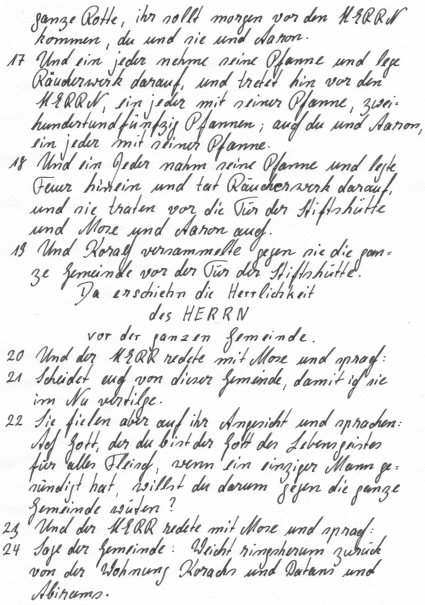 ganze Rotte, ihr sollt morgen vor den HERRN
kommen, du und sie und Aaron.
17 Und ein jeder nehme seine Pfanne und lege
Räucherwerk darauf, und tretet hin vor den
HERRN, ein jeder mit seiner Pfanne, zwei-
hundertundfünfzig Pfannen; auch du und Aaron,
ein jeder mit seiner Pfanne.
18 Und ein Jeder nahm seine Pfanne und legte
Feuer hinein und tat Räucherwerk darauf,
und sie traten vor die Tür der Stiftshütte
und Mose und Aaron auch.
19 Und Korah versammelte gegen sie die gan-
ze Gemeinde vor der Tür der Stiftshütte.
Da erschiehn die Herrlichkeit
des HERRN
vor der ganzen Gemeinde.
20 Und der HERR redete mit Mose und sprach:
21 Scheidet euch von dieser Gemeinde, damit ich sie
im Nu vertilge.
22 Sie fielen aber auf ihr Angesicht und sprachen:
Ach Gott, der du bist der Gott des Lebensgeistes
für alles Fleisch, wenn ein einziger Mann ge-
sündigt hat, willst du darum gegen die ganze
Gemeinde wüten?
23 Und der HERR redete mit Mose und sprach:
24 Sage der Gemeinde: Weicht ringsherum zurück
von der Wohnung Korachs und Datans und
Abirams.